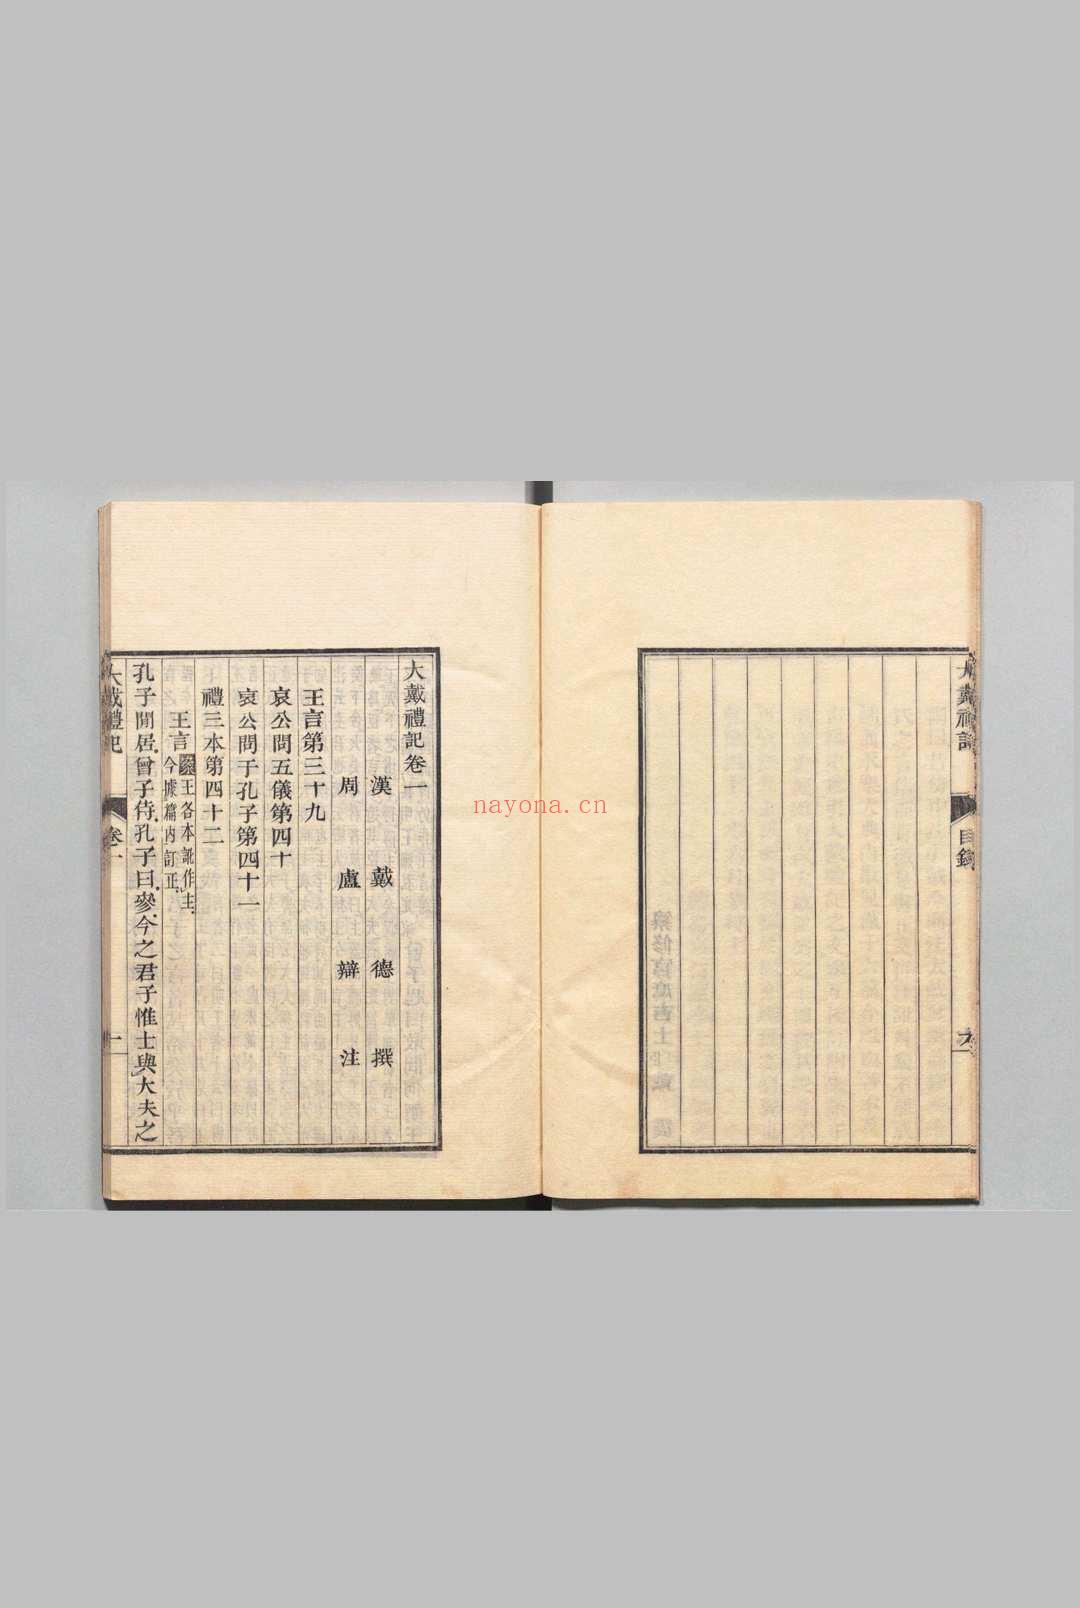 大戴禮記
目錄
大戴禮記卷一
漢 戴 德 撰
周 盧 辯 注
王言第三十九
哀公問五儀第四十
哀公問于孔子第四十一
禮三本第四十二
王言案王各本訛作主
今據篇內訂正
孔子閒居曾子侍孔子曰參今之君子惟士與大夫之
大戴禮記
卷一
一
nayona.cn